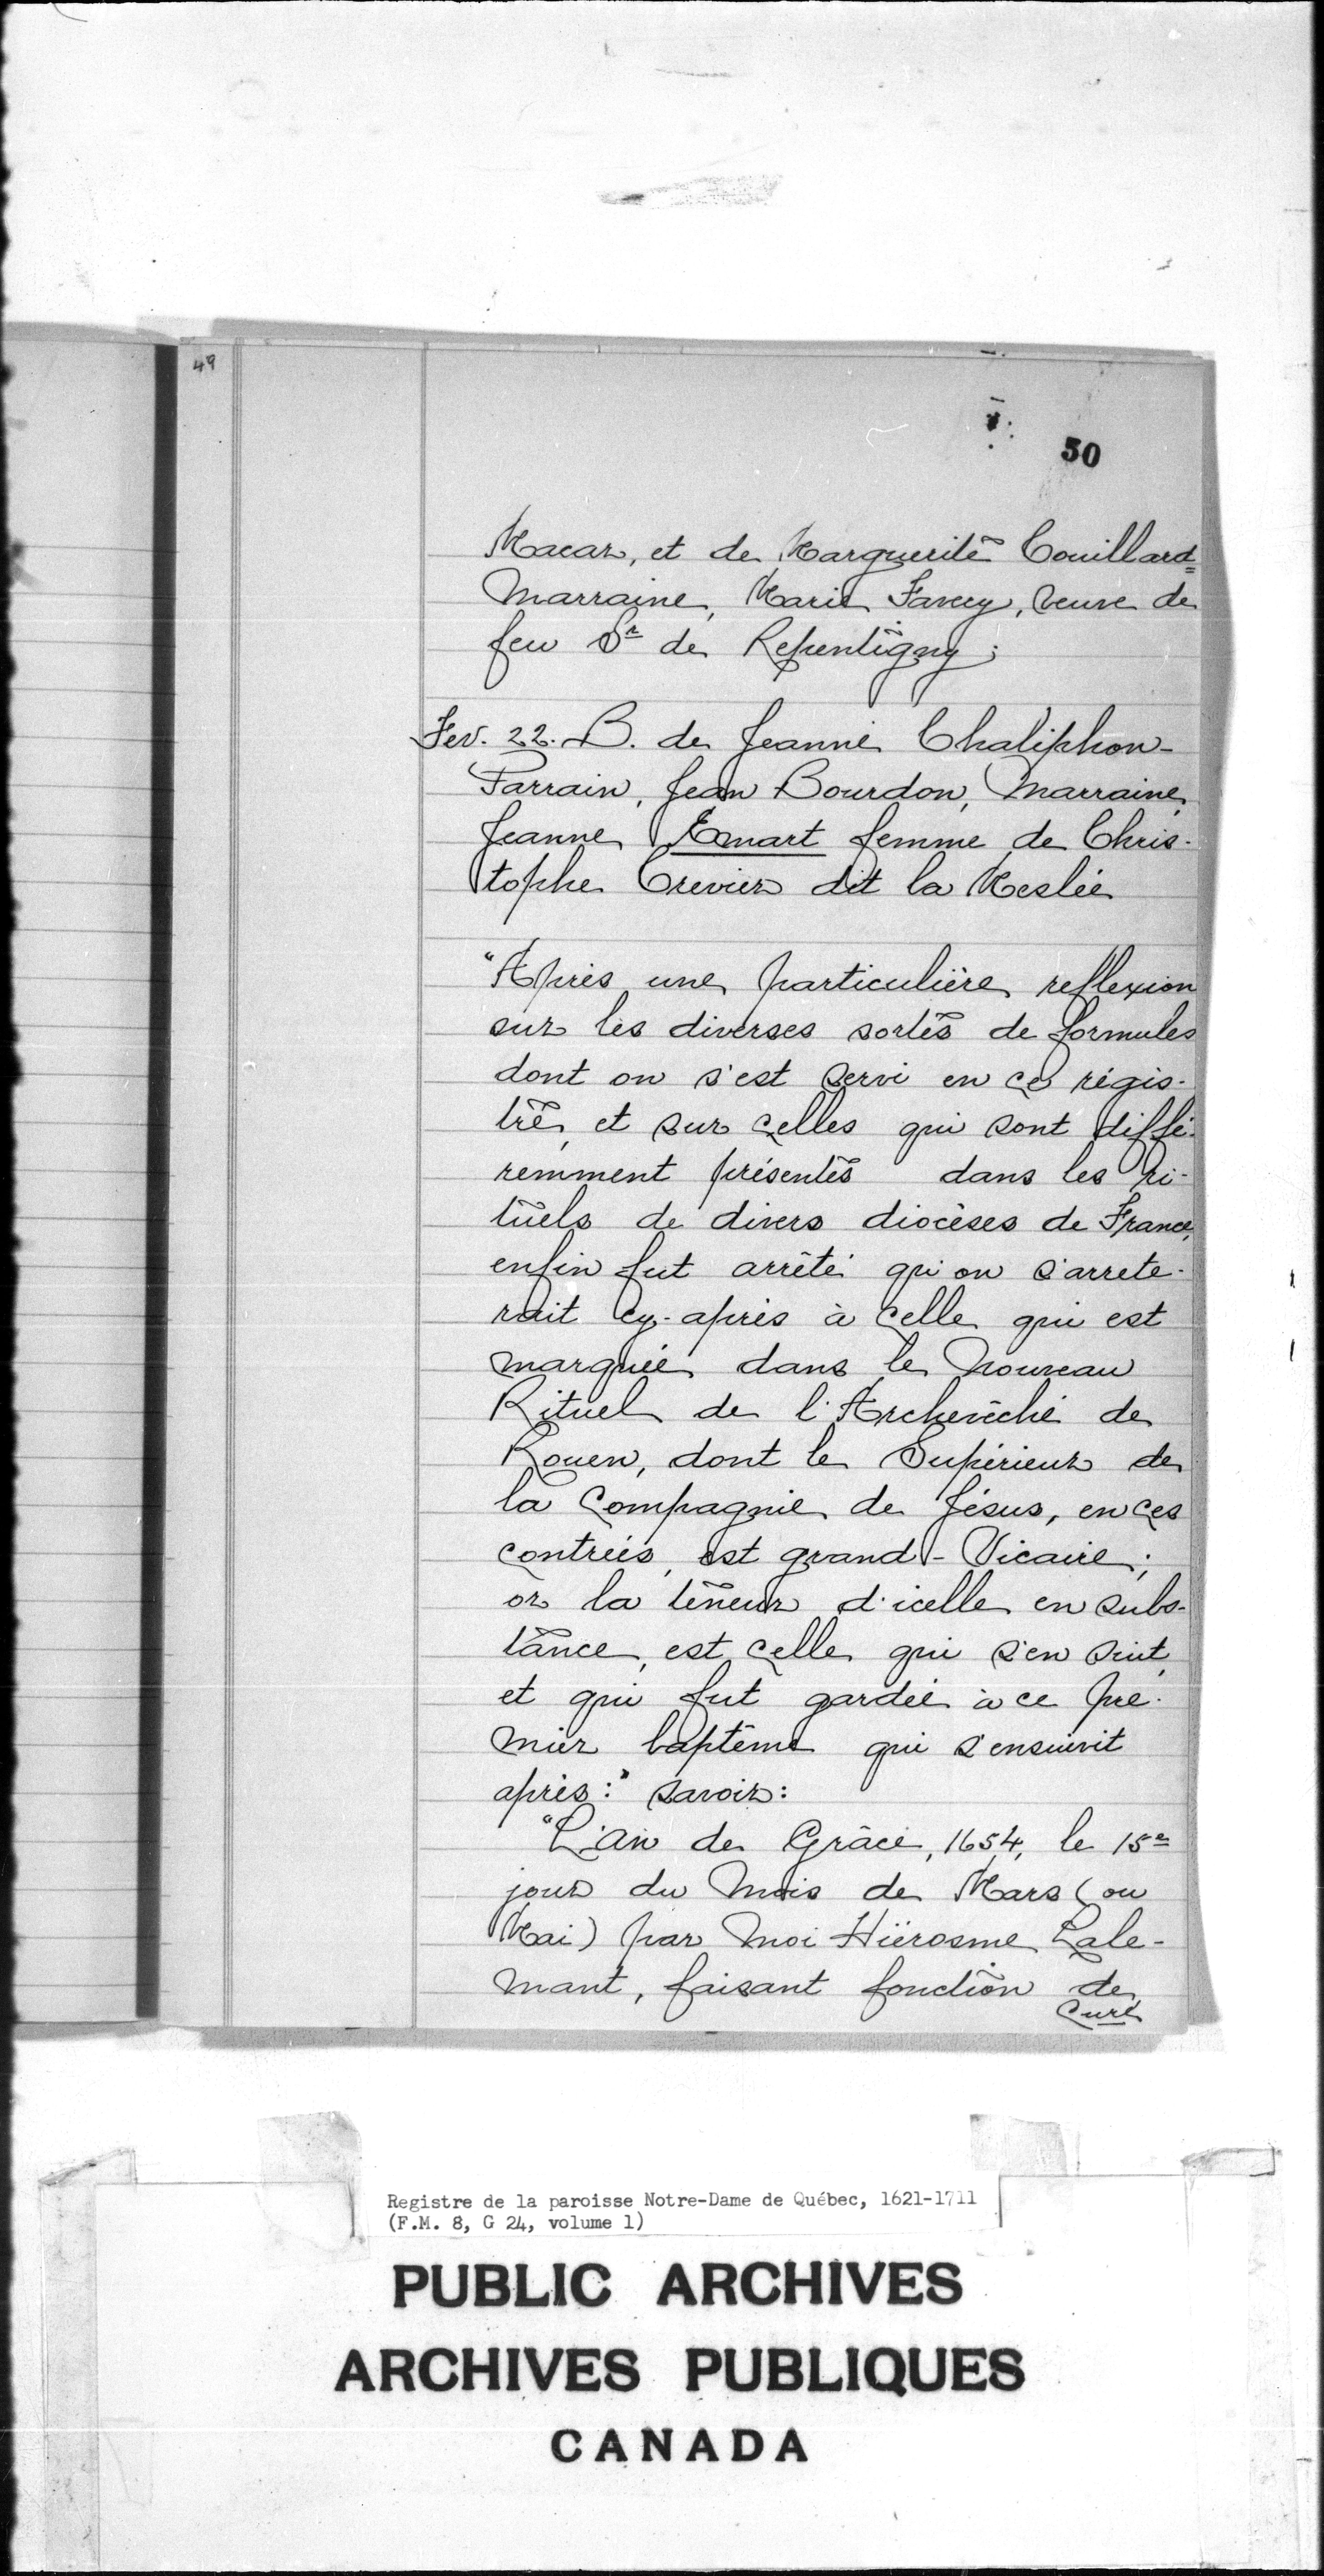 49
50
Macar, et de Marguerite Couillard=
Marraine, Marie Favery, veuve de
feu Sr de Repentigny;
Fev. 22. B. de Jeanne Chaliphon-
Parrain, Jean Bourdon, Marraine,
Jeanne Emart femme de Chris-
tophe Crevier dit la Meslée
"Après une particulière reflexion
sur les diverses sortes de formules
dont on s'est servi en ce régis-
tre, et sur celles qui sont diffé-
remment présentés dans les ri-
tuels de divers diocèses de France,
enfin fut arrêté qu'on s'arrete-
rait cy-après à celle qui est
marquée dans le nouveau
Rituel de l'Archevêché de
Rouen, dont le Supérieur de
la Compagnie de Jésus, en ces
contrées, est grand-Vicaire;
or la teneur d'icelle en subs-
tance, est celle qui s'en suit,
et qui fut gardée à ce pre-
mier baptême qui s'ensuivit
après:" savoir:
"L'an de Grâce, 1654, le 15e
jour du Mois de Mars (ou
Mai) par moi Hiërosme Lale-
mant, faisant fonction de
Curé
Registre de la paroisse Notre-Dame de Québec, 1621-1711
(F.M. 8, G 24, volume 1)
PUBLIC ARCHIVES
ARCHIVES PUBLIQUES
CANADA